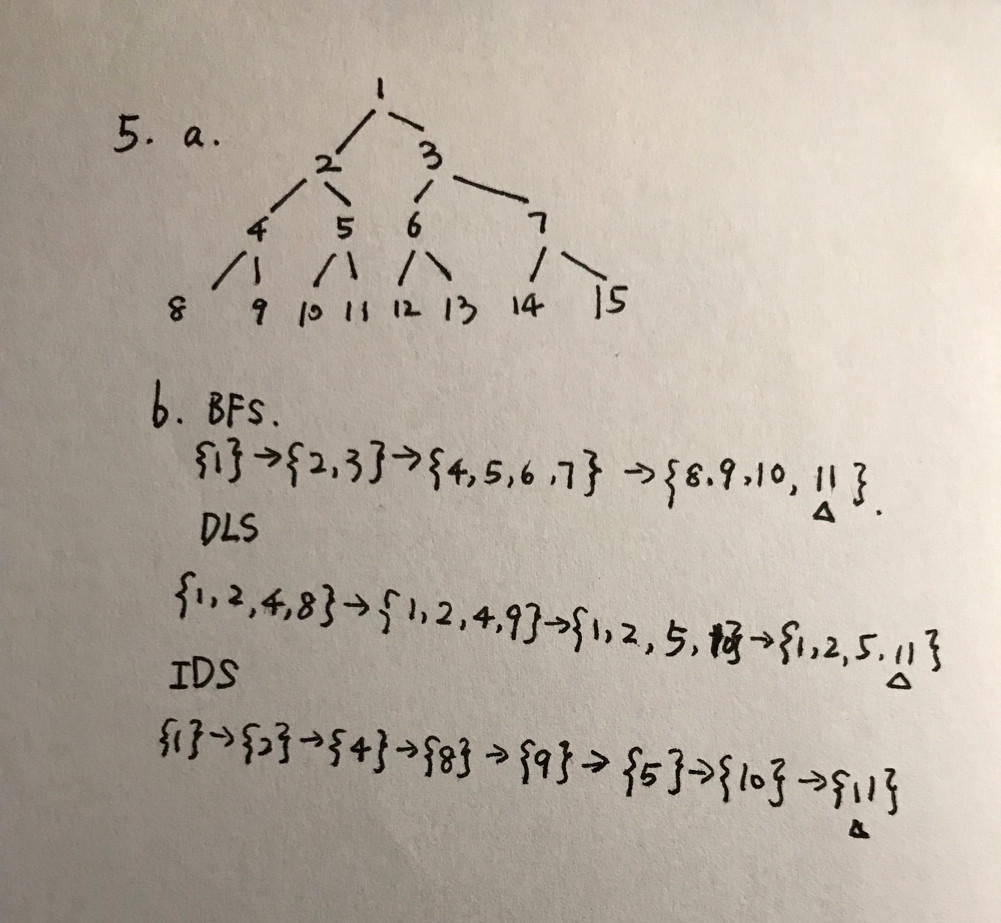 1
5. a.
2 3
4 5 6 7
8 9 10 11 12 13 14 15
b. BFS.
{1}→{2,3}→{4,5,6,7} →{8.9,10, 11}.
△
DLS
{1,2,4,8}→{1,2,4,9}→{1,2,5,10}→{1,2,5.11}
△
IDS
{1}→{2}→{4}→{8}→{9}→{5}→{10}→{11}
△